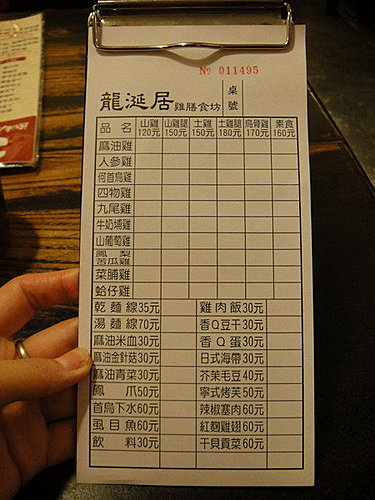 № 011495
龍涎居 雞膳食坊 桌號
品名 山雞120元 山雞腿150元 土雞150元 土雞腿180元 烏骨雞170元 素食160元
麻油雞
人參雞
何首烏雞
四物雞
九尾雞
牛奶埔雞
山葡萄雞
鳳梨苦瓜雞
菜脯雞
蛤仔雞
乾麵線35元 雞肉飯30元
湯麵線70元 香Q豆干30元
麻油米血30元 香Q蛋30元
麻油金針菇30元 日式海帶30元
麻油青菜30元 芥茉毛豆40元
鳳爪50元 寧式烤芙50元
首烏下水60元 辣椒塞肉60元
虱目魚60元 紅麴雞翅60元
飲料30元 干貝貢菜60元